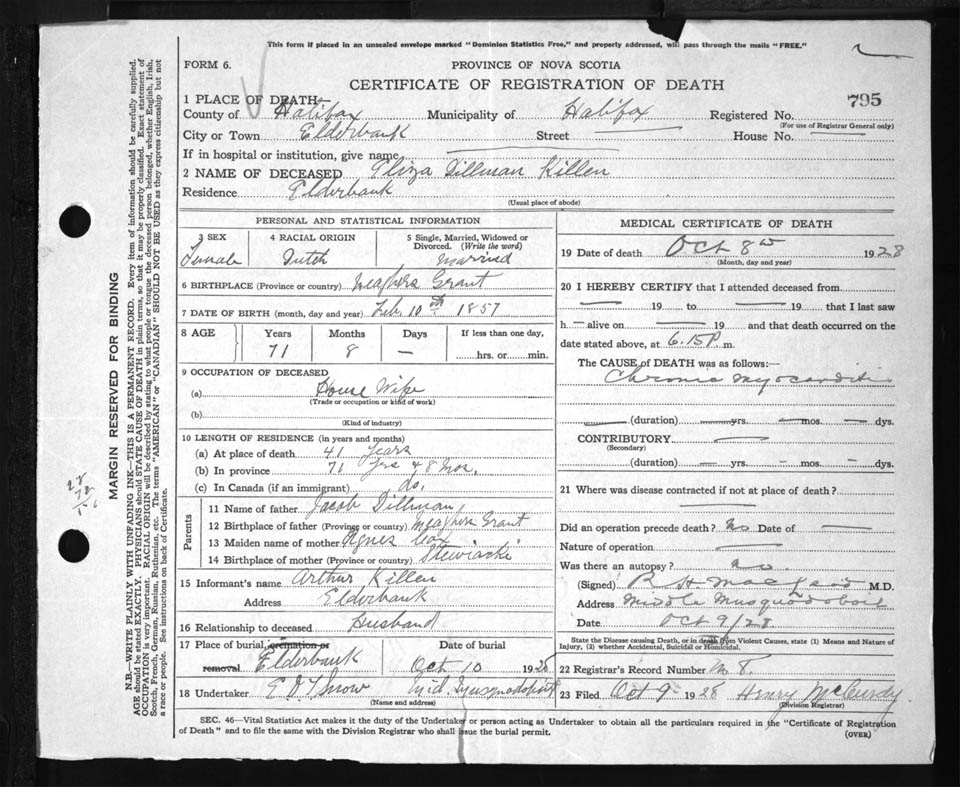 This form if placed in an unsealed envelope marked "Dominion Statistics Free," and properly addressed, will pass through the mails "FREE."
FORM 6.
PROVINCE OF NOVA SCOTIA
CERTIFICATE OF REGISTRATION OF DEATH
1 PLACE OF DEATH
795
County of Halifax Municipality of Halifax Registered No.
(For use of Registrar General only)
City or Town Elderbank Street House No.
If in hospital or institution, give name
2 NAME OF DECEASED Eliza Dillman Killen
Residence Elderbank
(Usual place of abode)
PERSONAL AND STATISTICAL INFORMATION
3 SEX 4 RACIAL ORIGIN 5 Single, Married, Widowed or Divorced. (Write the word)
Female Dutch Married
6 BIRTHPLACE (Province or county) Meaghers Grant
7 DATE OF BIRTH (month, day and year) Feb. 10th 1857
8 AGE Years Months Days If less than one day,
71 8 — hrs. or min.
9 OCCUPATION OF DECEASED
(a) House Wife
(Trade or occupation or kind of work)
(b)
(Kind of industry)
10 LENGTH OF RESIDENCE (in years and months)
(a) At place of death 41 Years
(b) In province 71 yrs & 8 mos.
(c) In Canada (if an immigrant) do.
Parents
11 Name of father Jacob Dillman
12 Birthplace of father (Province or county) Meaghers Grant
13 Maiden name of mother Agnes Cox
14 Birthplace of mother (Province or county) Stewiacki
15 Informant's name Arthur Killen
Address Elderbank
16 Relationship to deceased Husband
17 Place of burial, cremation or removal Date of burial
Elderbank Oct 10 1928
18 Undertaker E J Snow Mid. Musquodoboit
(Name and address)
MEDICAL CERTIFICATE OF DEATH
19 Date of death Oct 8th 1928
(Month, day and year)
20 I HEREBY CERTIFY that I attended deceased from
— 19 to — 19 that I last saw
h— alive on — 19 and that death occurred on the
date stated above, at 6.15 P. m.
The CAUSE of DEATH was as follows:
Chronic Myocarditis
(duration) — yrs. — mos. — dys.
CONTRIBUTORY —
(Secondary)
(duration) — yrs. — mos. — dys.
21 Where was disease contracted if not at place of death?
—
Did an operation precede death? No Date of —
Nature of operation —
Was there an autopsy? No
(Signed) R H MacLeod M.D.
Address Middle Musquodoboit
Date Oct 9/28
State the Disease causing Death, or in death from Violent Causes, state (1) Means and Nature of
Injury, (2) whether Accidental, Suicidal or Homicidal.
22 Registrar's Record Number
23 Filed Oct 9 1928 Henry McCurdy
(Division Registrar)
SEC. 46—Vital Statistics Act makes it the duty of the Undertaker or person acting as Undertaker to obtain all the particulars required in the "Certificate of Registration
of Death" and to file the same with the Division Registrar who shall issue the burial permit.
(OVER)
MARGIN RESERVED FOR BINDING
N.B.—WRITE PLAINLY WITH UNFADING INK—THIS IS A PERMANENT RECORD. Every item of information should be carefully supplied.
AGE should be stated EXACTLY. PHYSICIANS should STATE CAUSE OF DEATH in plain terms, so that it may be properly classified. Exact statement of
OCCUPATION is very important. RACIAL ORIGIN will be described by stating to what people or tongue the deceased person belonged, whether English, Irish,
Scotch, French, German, Russian, Ruthenian, etc. The terms "AMERICAN" or "CANADIAN" SHOULD NOT BE USED as they express citizenship but not
a race or people. See instructions on back of Certificate.